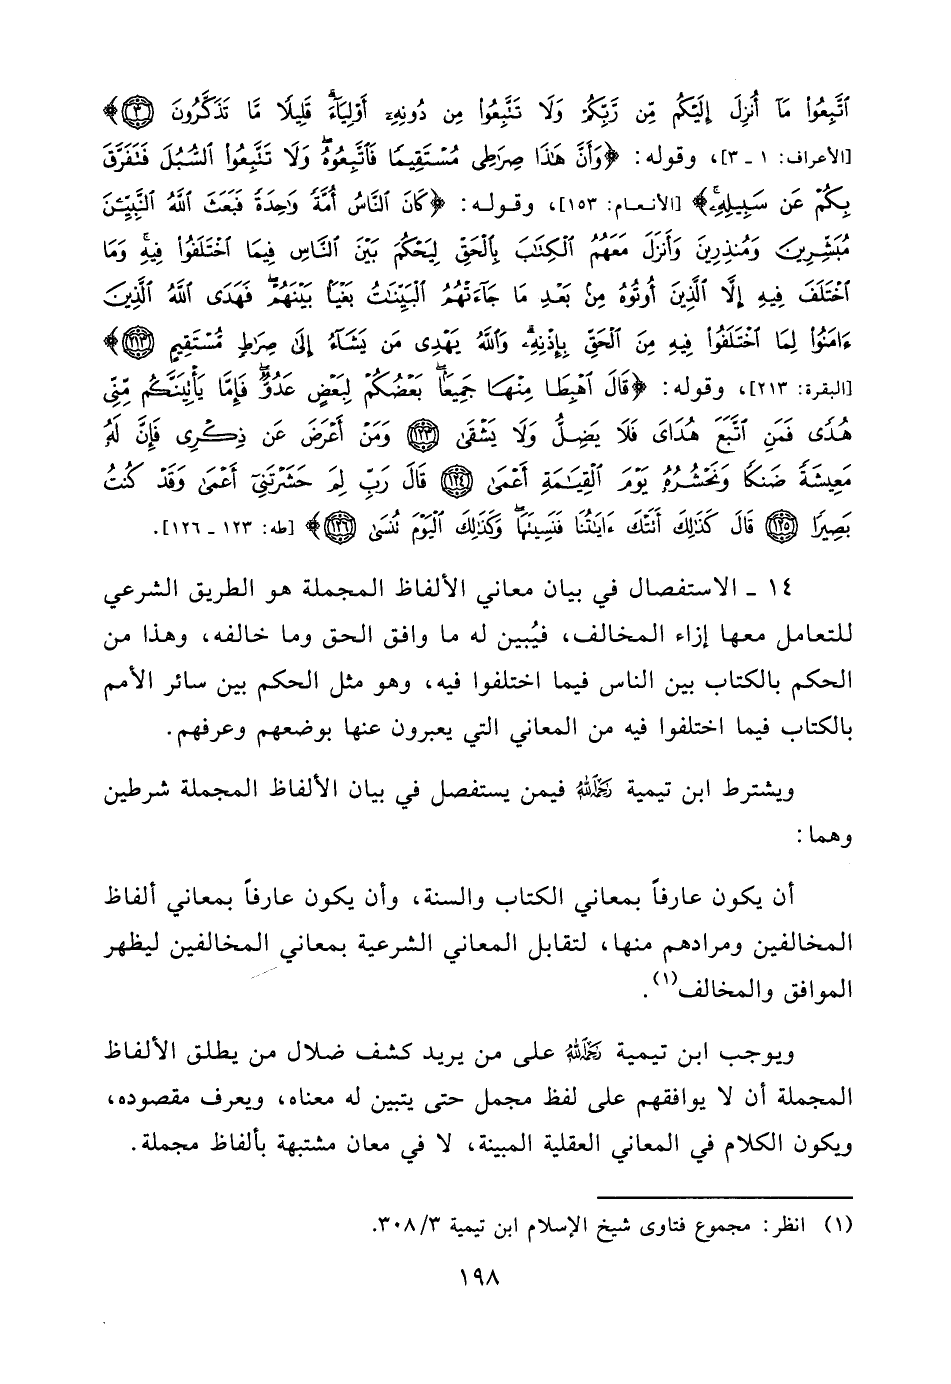 ٱتَّبِعُوا۟ مَآ أُنزِلَ إِلَيْكُم مِّن رَّبِّكُمْ وَلَا تَتَّبِعُوا۟ مِن دُونِهِۦٓ أَوْلِيَآءَ ۗ قَلِيلًا مَّا تَذَكَّرُونَ ۝٣﴾
[الأعراف: ١ ـ ٣]، وقوله: ﴿وَأَنَّ هَٰذَا صِرَٰطِى مُسْتَقِيمًا فَٱتَّبِعُوهُ ۖ وَلَا تَتَّبِعُوا۟ ٱلسُّبُلَ فَتَفَرَّقَ
بِكُمْ عَن سَبِيلِهِۦ ۚ﴾ [الأنعام: ١٥٣]، وقوله: ﴿كَانَ ٱلنَّاسُ أُمَّةً وَٰحِدَةً فَبَعَثَ ٱللَّهُ ٱلنَّبِيِّـۧنَ
مُبَشِّرِينَ وَمُنذِرِينَ وَأَنزَلَ مَعَهُمُ ٱلْكِتَٰبَ بِٱلْحَقِّ لِيَحْكُمَ بَيْنَ ٱلنَّاسِ فِيمَا ٱخْتَلَفُوا۟ فِيهِ ۚ وَمَا
ٱخْتَلَفَ فِيهِ إِلَّا ٱلَّذِينَ أُوتُوهُ مِنۢ بَعْدِ مَا جَآءَتْهُمُ ٱلْبَيِّنَٰتُ بَغْيًۢا بَيْنَهُمْ ۖ فَهَدَى ٱللَّهُ ٱلَّذِينَ
ءَامَنُوا۟ لِمَا ٱخْتَلَفُوا۟ فِيهِ مِنَ ٱلْحَقِّ بِإِذْنِهِۦ ۗ وَٱللَّهُ يَهْدِى مَن يَشَآءُ إِلَىٰ صِرَٰطٍ مُّسْتَقِيمٍ ۝٢١٣﴾
[البقرة: ٢١٣]، وقوله: ﴿قَالَ ٱهْبِطَا مِنْهَا جَمِيعًۢا ۖ بَعْضُكُمْ لِبَعْضٍ عَدُوٌّ ۖ فَإِمَّا يَأْتِيَنَّكُم مِّنِّى
هُدًى فَمَنِ ٱتَّبَعَ هُدَاىَ فَلَا يَضِلُّ وَلَا يَشْقَىٰ ۝١٢٣ وَمَنْ أَعْرَضَ عَن ذِكْرِى فَإِنَّ لَهُۥ
مَعِيشَةً ضَنكًا وَنَحْشُرُهُۥ يَوْمَ ٱلْقِيَٰمَةِ أَعْمَىٰ ۝١٢٤ قَالَ رَبِّ لِمَ حَشَرْتَنِىٓ أَعْمَىٰ وَقَدْ كُنتُ
بَصِيرًا ۝١٢٥ قَالَ كَذَٰلِكَ أَتَتْكَ ءَايَٰتُنَا فَنَسِيتَهَا ۖ وَكَذَٰلِكَ ٱلْيَوْمَ تُنسَىٰ ۝١٢٦﴾ [طه: ١٢٣ ـ ١٢٦].
١٤ ـ الاستفصال في بيان معاني الألفاظ المجملة هو الطريق الشرعي
للتعامل معها إزاء المخالف، فيُبين له ما وافق الحق وما خالفه، وهذا من
الحكم بالكتاب بين الناس فيما اختلفوا فيه، وهو مثل الحكم بين سائر الأمم
بالكتاب فيما اختلفوا فيه من المعاني التي يعبرون عنها بوضعهم وعرفهم.
ويشترط ابن تيمية رحمه الله فيمن يستفصل في بيان الألفاظ المجملة شرطين
وهما:
أن يكون عارفاً بمعاني الكتاب والسنة، وأن يكون عارفاً بمعاني ألفاظ
المخالفين ومرادهم منها، لتقابل المعاني الشرعية بمعاني المخالفين ليظهر
الموافق والمخالف(١).
ويوجب ابن تيمية رحمه الله على من يريد كشف ضلال من يطلق الألفاظ
المجملة أن لا يوافقهم على لفظ مجمل حتى يتبين له معناه، ويعرف مقصوده،
ويكون الكلام في المعاني العقلية المبينة، لا في معان مشتبهة بألفاظ مجملة.
(١) انظر: مجموع فتاوى شيخ الإسلام ابن تيمية ٣/ ٣٠٨.
١٩٨